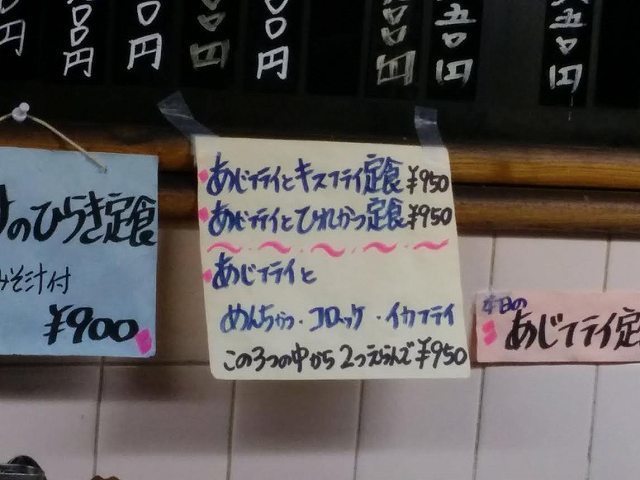 00円
00円
0円
00円
00円
00円
五〇円
五〇円
のひらき定食
みそ汁付
¥900
あじフライとキスフライ定食¥950
あじフライとひれかつ定食¥950
あじフライと
めんちかつ・コロッケ・イカフライ
この3つの中から2つえらんで¥950
本日の
あじフライ定